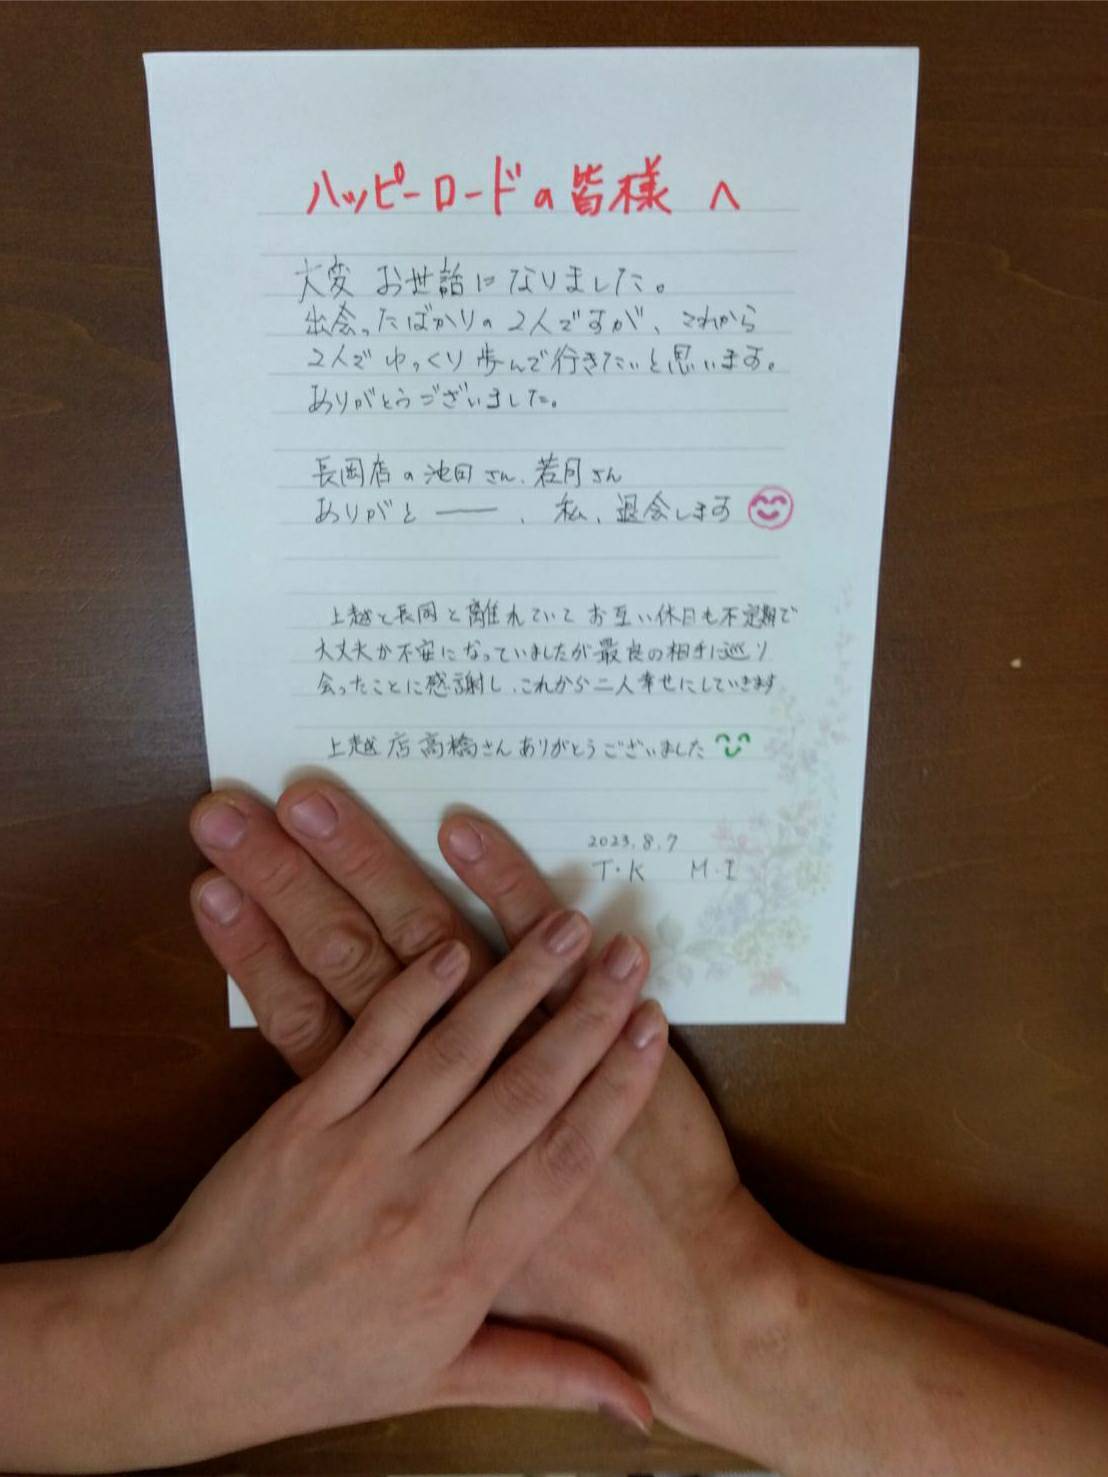 ハッピーロードの皆様 へ
大変 お世話になりました。
出会ったばかりの2人ですが、これから
2人でゆっくり歩んで行きたいと思います。
ありがとうございました。
長岡店の池田さん、若月さん
ありがと――、私、退会します
上越と長岡と離れていてお互い休日も不定期で
大丈夫か不安になっていましたが最良の相手に巡り
会ったことに感謝し、これから二人幸せにしていきます
上越店高橋さんありがとうございました
2023.8.7
T・K M・I